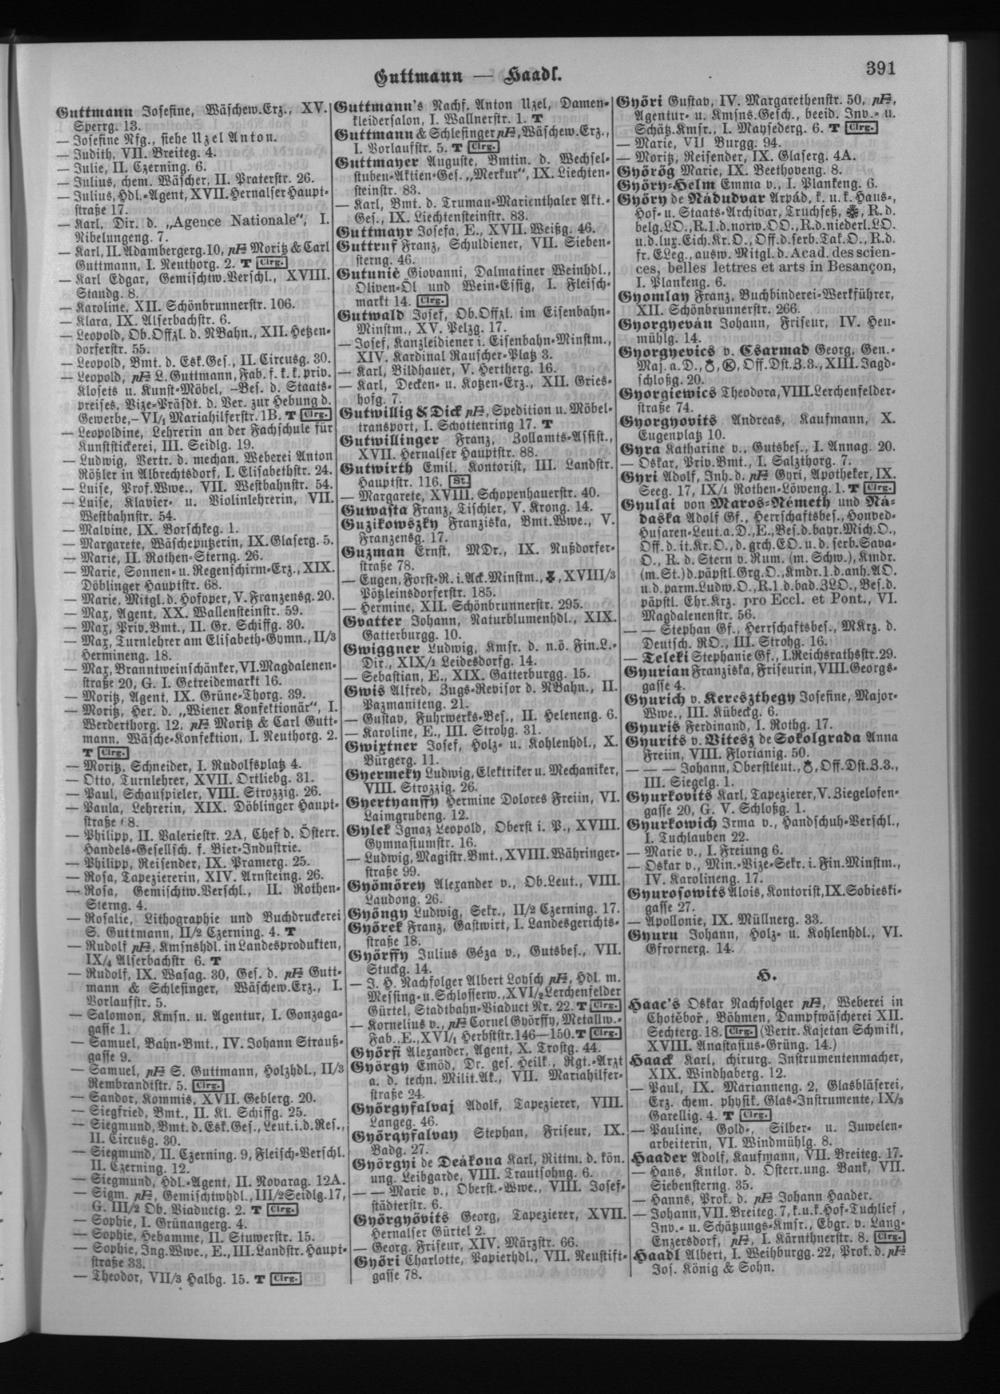 Guttmann — Haadl.
391
Guttmann Josefine, Wäschew.Erz., XV.
Sperrg. 13.
— Josefine Nfg., siehe Uzel Anton.
— Judith, VII. Breiteg. 4.
— Julie, II. Czerning. 6.
— Julius, chem. Wäscher, II. Praterstr. 26.
— Julius, Hdl.-Agent, XVII. Hernalser Haupt-
straße 17.
— Karl, Dir. d. „Agence Nationale“, I.
Nibelungeng. 7.
— Karl, II. Adambergerg. 10, Moritz & Carl
Guttmann, I. Neuthorg. 2. T Clrg.
— Karl Edgar, Gemischtw.Verschl., XVIII.
Staudg. 8.
— Karoline, XII. Schönbrunnerstr. 106.
— Klara, IX. Alserbachstr. 6.
— Leopold, Ob.Offzl. d. NBahn., XII. Hetzen-
dorferstr. 55.
— Leopold, Bmt. d. Esk.Ges., II. Circusg. 30.
— Leopold, L. Guttmann, Fab. f. k. k. priv.
Klosets u. Kunst-Möbel, -Bes. d. Staats-
preises, Vize-Präsdt. d. Ver. zur Hebung d.
Gewerbe, – VI/1 Mariahilferstr. 1B. T Clrg.
— Leopoldine, Lehrerin an der Fachschule für
Kunststickerei, III. Seidlg. 19.
— Ludwig, Vertr. d. mechan. Weberei Anton
Rößler in Albrechtsdorf, I. Elisabethstr. 24.
— Luise, Prof.Wwe., VII. Westbahnstr. 54.
— Luise, Klavier- u. Violinlehrerin, VII.
Westbahnstr. 54.
— Malvine, IX. Borschkeg. 1.
— Margarete, Wäscheputzerin, IX. Glaserg. 5.
— Marie, II. Rothen-Sterng. 26.
— Marie, Sonnen- u. Regenschirm-Erz., XIX.
Döblinger Hauptstr. 68.
— Marie, Mitgl. d. Hofoper, V. Franzensg. 20.
— Max, Agent, XX. Wallensteinstr. 59.
— Max, Priv.Bmt., II. Gr. Schiffg. 30.
— Max, Turnlehrer am Elisabeth-Gymn., II/3
Hermineng. 18.
— Max, Branntweinschänker, VI. Magdalenen-
straße 20, G. I. Getreidemarkt 16.
— Moritz, Agent, IX. Grüne-Thorg. 39.
— Moritz, Her. d. „Wiener Konfektionär“, I.
Werderthorg. 12. Moritz & Carl Gutt-
mann, Wäsche-Konfektion, I. Neuthorg. 2.
T Clrg.
— Moritz, Schneider, I. Rudolfsplatz 4.
— Otto, Turnlehrer, XVII. Ortliebg. 31.
— Paul, Schauspieler, VIII. Strozzig. 26.
— Paula, Lehrerin, XIX. Döblinger Haupt-
straße 8.
— Philipp, II. Valeriestr. 2A, Chef d. Österr.
Handels-Gesellsch. f. Bier-Industrie.
— Philipp, Reisender, IX. Pramerg. 25.
— Rosa, Tapeziererin, XIV. Arnsteing. 26.
— Rosa, Gemischtw.Verschl., II. Rothen-
Sterng. 4.
— Rosalie, Lithographie und Buchdruckerei
S. Guttmann, II/2 Czerning. 4. T
— Rudolf Kmsnshdl. in Landesprodukten,
IX/4 Alserbachstr 6. T
— Rudolf, IX. Wasag. 30, Ges. d. Gutt-
mann & Schlesinger, Wäschew.Erz., I.
Vorlaufstr. 5.
— Salomon, Kmsn. u. Agentur, I. Gonzaga-
gasse 1.
— Samuel, Bahn-Bmt., IV. Johann Strauß-
gasse 9.
— Samuel, S. Guttmann, Holzhdl., II/3
Rembrandtstr. 5. Clrg.
— Sandor, Kommis, XVII. Geblerg. 20.
— Siegfried, Bmt., II. Kl. Schiffg. 25.
— Siegmund, Bmt. d. Esk.Ges., Leut. i. d. Res.,
II. Circusg. 30.
— Siegmund, II. Czerning. 9, Fleisch-Verschl.
II. Czerning. 12.
— Siegmund, Hdl.-Agent, II. Novarag. 12A.
— Sigm. Gemischtwhdl., III/2 Seidlg. 17,
G. III/2 Ob. Viaductg. 2. T Clrg.
— Sophie, I. Grünangerg. 4.
— Sophie, Hebamme, II. Stuwerstr. 15.
— Sophie, Ing.Wwe., E., III. Landstr. Haupt-
straße 33.
— Theodor, VII/3 Halbg. 15. T Clrg.
Guttmann's Nachf. Anton Uzel, Damen-
kleidersalon, I. Wallnerstr. 1. T
Guttmann & Schlesinger Wäschew.Erz.,
I. Vorlaufstr. 5. T Clrg.
Guttmayer Auguste, Bmtin. d. Wechsel-
stuben-Aktien-Ges. „Merkur“, IX. Liechten-
steinstr. 83.
— Karl, Bmt. d. Trumau-Marienthaler Akt.-
Ges., IX. Liechtensteinstr. 83.
Guttmayr Josefa, E., XVII. Weißg. 46.
Guttruf Franz, Schuldiener, VII. Sieben-
sterng. 46.
Gutunić Giovanni, Dalmatiner Weinhdl.,
Oliven-Öl und Wein-Essig, I. Fleisch-
markt 14. Clrg.
Gutwald Josef, Ob.Offzl. im Eisenbahn-
Minstm., XV. Pelzg. 17.
— Josef, Kanzleidiener i. Eisenbahn-Minstm.,
XIV. Kardinal Rauscher-Platz 3.
— Karl, Bildhauer, V. Hertherg. 16.
— Karl, Decken- u. Kotzen-Erz., XII. Gries-
hofg. 7.
Gutwillig & Dick Spedition u. Möbel-
transport, I. Schottenring 17. T
Gutwillinger Franz, Zollamts-Assist.,
XVII. Hernalser Hauptstr. 88.
Gutwirth Emil, Kontorist, III. Landstr.
Hauptstr. 116. St.
— Margarete, XVIII. Schopenhauerstr. 40.
Guwasta Franz, Tischler, V. Krong. 14.
Guzikowszky Franziska, Bmt.Wwe., V.
Franzensg. 17.
Guzman Ernst, MDr., IX. Nußdorfer-
straße 78.
— Eugen, Forst-R. i. Ack. Minstm., XVIII/3
Pötzleinsdorferstr. 185.
— Hermine, XII. Schönbrunnerstr. 295.
Gvatter Johann, Naturblumenhdl., XIX.
Gatterburgg. 10.
Gwiggner Ludwig, Kmsr. d. n.ö. Fin.L.-
Dir., XIX/1 Leidesdorfg. 14.
— Sebastian, E., XIX. Gatterburgg. 15.
Gwis Alfred, Zugs-Revisor d. NBahn., II.
Pazmaniteng. 21.
— Gustav, Fuhrwerks-Bes., II. Heleneng. 6.
— Karoline, E., III. Strohg. 31.
Gwixtner Josef, Holz- u. Kohlenhdl., X.
Bürgerg. 11.
Gyermeky Ludwig, Elektriker u. Mechaniker,
VIII. Strozzig. 26.
Gyertyanffy Hermine Dolores Freiin, VI.
Laimgrubeng. 12.
Gylek Ignaz Leopold, Oberst i. P., XVIII.
Gymnasiumstr. 16.
— Ludwig, Magistr.Bmt., XVIII. Währinger-
straße 99.
Gyömörey Alexander v., Ob.Leut., VIII.
Laudong. 26.
Gyöngy Ludwig, Sekr., II/2 Czerning. 17.
Györek Franz, Gastwirt, I. Landesgerichts-
straße 18.
Györffy Julius Géza v., Gutsbes., VII.
Stuckg. 14.
— J. H. Nachfolger Albert Loysch Hdl. m.
Messing- u. Schlosserw., XVI/2 Lerchenfelder
Gürtel, Stadtbahn-Viaduct Nr. 22. T Clrg.
— Kornelius v., Cornel Györffy, Metallw.-
Fab., E., XVI/1 Herbststr. 146—150. T Clrg.
Györfi Alexander, Agent, X. Trostg. 44.
György Emöd, Dr. ges. Heilk., Rgt.-Arzt
a. d. techn. Milit.Ak., VII. Mariahilfer-
straße 24.
Györgyfalvaj Adolf, Tapezierer, VIII.
Langeg. 46.
Györgyfalvay Stephan, Friseur, IX.
Badg. 27.
Györgyi de Deákona Karl, Rittm. d. kön.
ung. Leibgarde, VIII. Trautsohng. 6.
— — Marie v., Oberst.-Wwe., VIII. Josef-
städterstr. 6.
Györgyövits Georg, Tapezierer, XVII.
Hernalser Gürtel 2.
— Georg, Friseur, XIV. Märzstr. 66.
Györi Charlotte, Papierhdl., VII. Neustift-
gasse 78.
Györi Gustav, IV. Margarethenstr. 50,
Agentur- u. Kmsns.Gesch., beeid. Inv.- u.
Schätz.Kmsr., I. Maysederg. 6. T Clrg.
— Marie, VII Burgg. 94.
— Moritz, Reisender, IX. Glaserg. 4A.
Györög Marie, IX. Beethoveng. 8.
Györy-Helm Emma v., I. Plankeng. 6.
Györy de Nádudvar Arpád, k. u. k. Haus-,
Hof- u. Staats-Archivar, Truchseß, R. d.
belg. LO., R. 1. d. norw. OO., R. d. niederl. LO.
u. d. lux. Eich. Kr. O., Off. d. serb. Tak. O., R. d.
fr. ELeg., ausw. Mitgl. d. Acad. des scien-
ces, belles lettres et arts in Besançon,
I. Plankeng. 6.
Gyomlay Franz, Buchbinderei-Werkführer,
XII. Schönbrunnerstr. 266.
Gyorgyeván Johann, Friseur, IV. Heu-
mühlg. 14.
Gyorgyevics v. Csarmad Georg, Gen.-
Maj. a. D., Off. Dst. Z. 3., XIII. Jagd-
schloßg. 20.
Gyorgiewics Theodora, VIII. Lerchenfelder-
straße 74.
Gyorgyovits Andreas, Kaufmann, X.
Eugenplatz 10.
Gyra Katharine v., Gutsbes., I. Annag. 20.
— Oskar, Priv.Bmt., I. Salzthorg. 7.
Gyri Adolf, Inh. d. Gyri, Apotheker, IX.
Seeg. 17, IX/1 Rothen-Löweng. 1. T Clrg.
Gyulai von Maros-Németh und Ná-
daska Adolf Gf., Herrschaftsbes., Honved-
Husaren-Leut. a. D., E., Bes. d. bayr. Mich. O.,
Off. d. it. Kr. O., d. grch. EO. u. d. serb. Sava-
O., R. d. Stern v. Rum. (m. Schw.), Kmdr.
(m. St.) d. päpstl. Grg. O., Kmdr. 1. d. anh. AO.
u. d. parm. Ludw. O., R. 1. d. bad. ZLO., Bes. d.
päpstl. Ehr. Krz. pro Eccl. et Pont., VI.
Magdalenenstr. 56.
— — Stephan Gf., Herrschaftsbes., MKrz. d.
Deutsch. RO., III. Strohg. 16.
— Teleki Stephanie Gf., I. Reichsrathsstr. 29.
Gyurian Franziska, Friseurin, VIII. Georgs-
gasse 4.
Gyurich v. Kereszthegy Josefine, Major-
Wwe., III. Kübeckg. 6.
Gyuris Ferdinand, I. Rothg. 17.
Gyurits v. Vitesz de Sokolgrada Anna
Freiin, VIII. Florianig. 50.
— — — Johann, Oberstleut., Off. Dst. Z. 3.,
III. Siegelg. 1.
Gyurkovits Karl, Tapezierer, V. Ziegelofen-
gasse 20, G. V. Schloßg. 1.
Gyurkowich Irma v., Handschuh-Verschl.,
I. Tuchlauben 22.
— Marie v., I. Freiung 6.
— Oskar v., Min.-Vize-Sekr. i. Fin.Minstm.,
IV. Karolineng. 17.
Gyurosowits Alois, Kontorist, IX. Sobieski-
gasse 27.
— Apollonie, IX. Müllnerg. 33.
Gyuru Johann, Holz- u. Kohlenhdl., VI.
Gfrornerg. 14.
H.
Haac's Oskar Nachfolger Weberei in
Chotěboř, Böhmen, Dampfwäscherei XII.
Sechterg. 18. Clrg. (Vertr. Kajetan Schmikl,
XVIII. Anastasius-Grüng. 14.)
Haack Karl, chirurg. Instrumentenmacher,
XIX. Windhaberg. 12.
— Paul, IX. Marianneng. 2, Glasbläserei,
Erz. chem. physik. Glas-Instrumente, IX/3
Garellig. 4. T Clrg.
— Pauline, Gold-, Silber- u. Juwelen-
arbeiterin, VI. Windmühlg. 8.
Haader Adolf, Kaufmann, VII. Breiteg. 17.
— Hans, Kntlor. d. Österr.ung. Bank, VII.
Siebensterng. 35.
— Hanns, Prok. d. Johann Haader.
— Johann, VII. Breiteg. 7, k. u. k. Hof-Tuchlief.,
Inv.- u. Schätzungs-Kmsr., Ebgr. v. Lang-
Enzersdorf, I. Kärnthnerstr. 8. Clrg.
Haadl Albert, I. Weihburgg. 22, Prok. d.
Jos. König & Sohn.